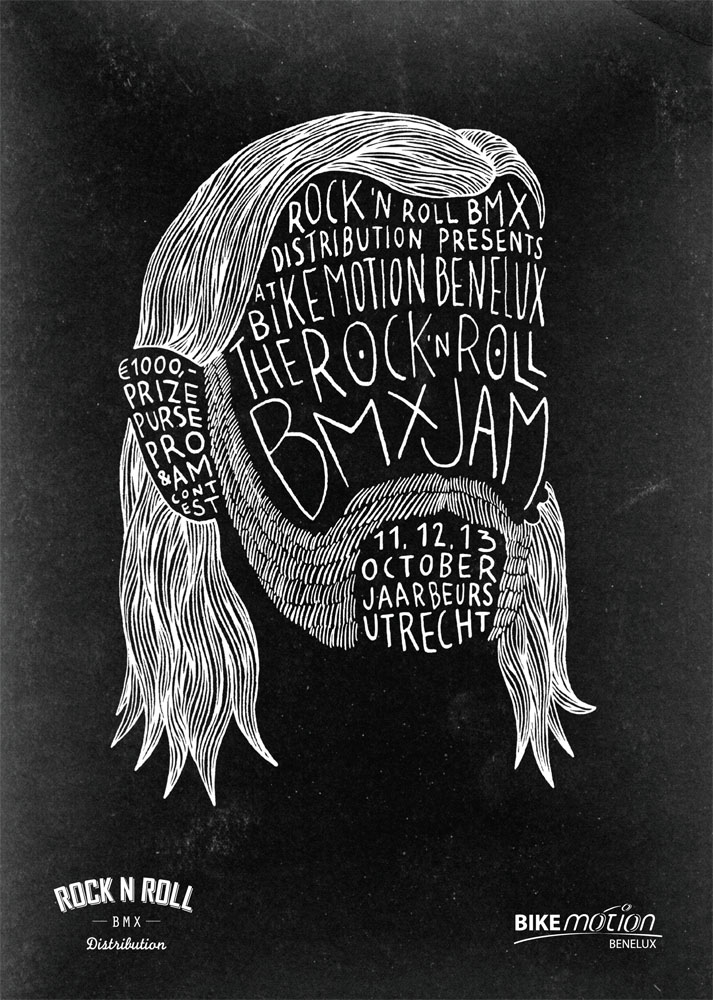 ROCK 'N ROLL BMX
DISTRIBUTION PRESENTS
AT
BIKEMOTION BENELUX
THE ROCK 'N ROLL
BMX JAM
€1000,-
PRIZE
PURSE
PRO
& AM
CONT
EST
11, 12, 13
OCTOBER
JAARBEURS
UTRECHT
ROCK N ROLL
BMX
Distribution
BIKE motion
BENELUX